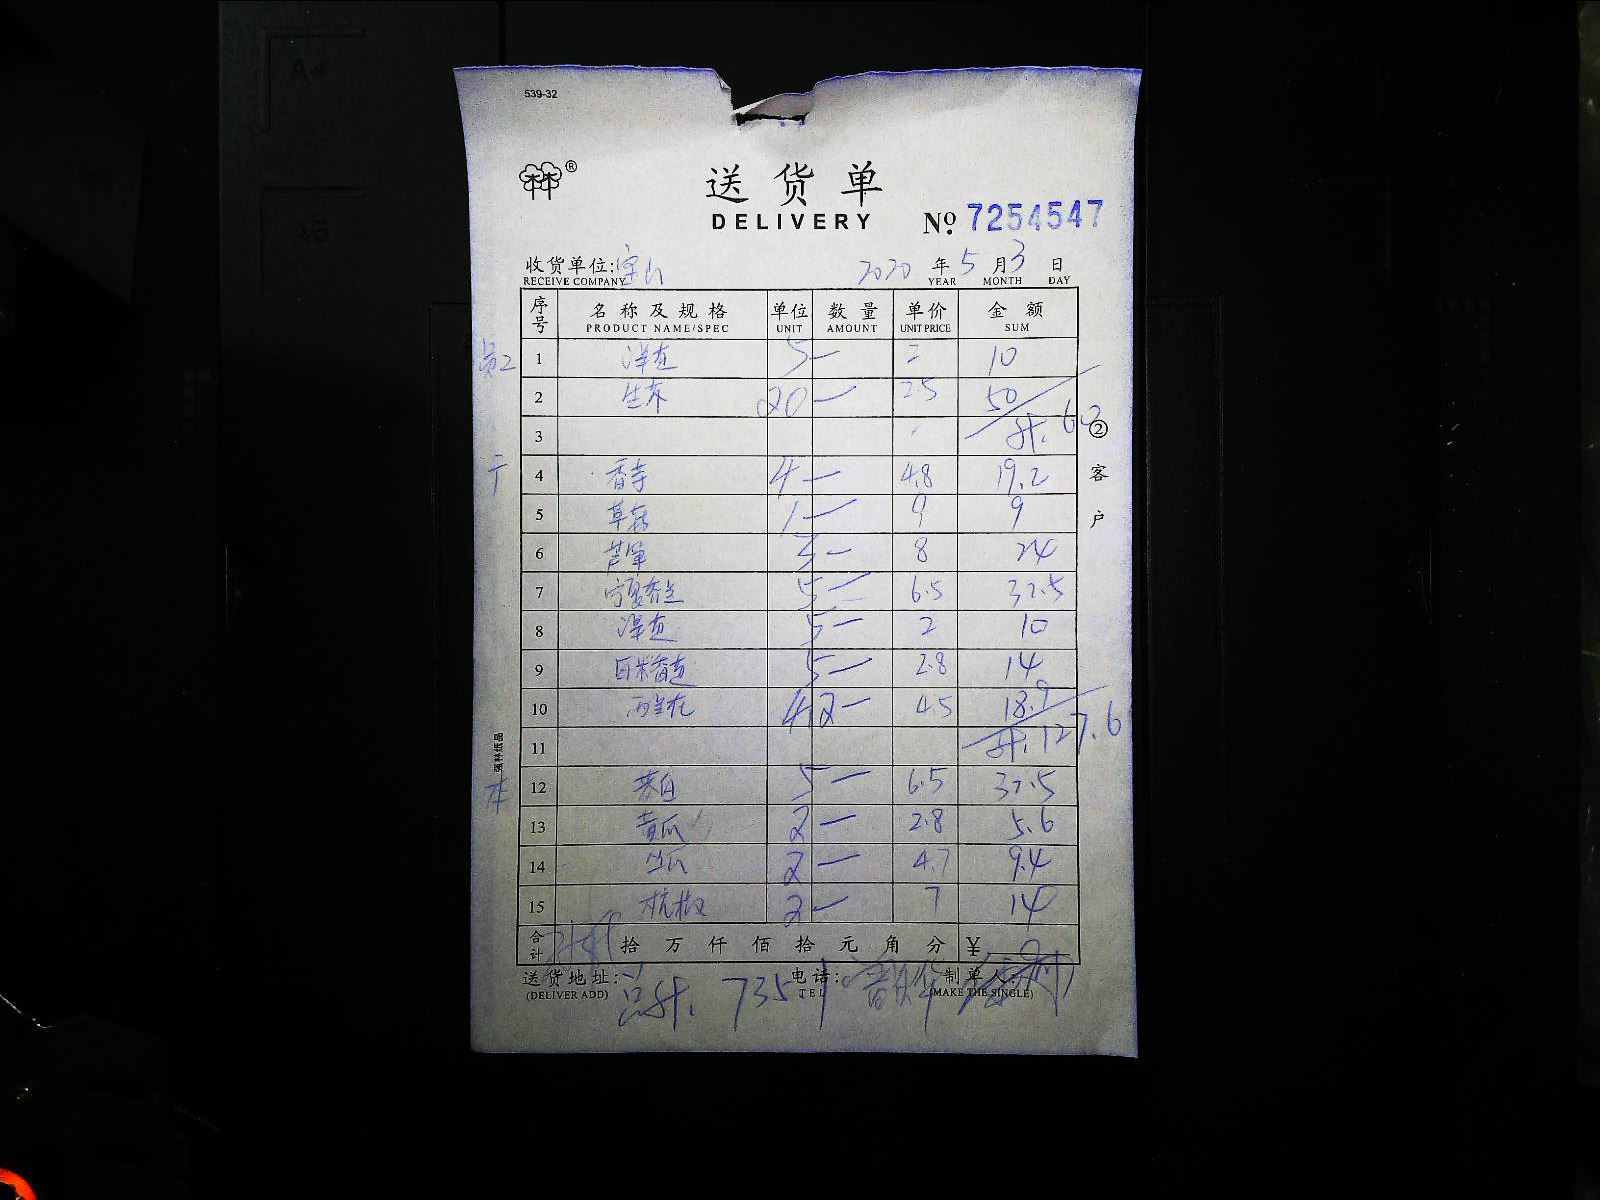 539-32
送货单
DELIVERY № 7254547
收货单位: 2020 年 5 月 3 日
RECEIVE COMPANY YEAR MONTH DAY
序号 名称及规格 单位 数量 单价 金额
PRODUCT NAME/SPEC UNIT AMOUNT UNIT PRICE SUM
员工 1 洋芋 5 2 10
2 生菜 20 2.5 50
3 计.
4 4 4.8 19.2
5 草菇 1 9 9
6 芦笋 3 8 24
7 5 6.5 32.5
8 5 2 10
9 5 2.8 14
10 西兰花 4.2 4.5 18.9
11 计. 127.6
12 茭白 5 6.5 32.5
13 青瓜 2 2.8 5.6
14 丝瓜 2 4.7 9.4
15 杭椒 2 7 14
合计 拾 万 仟 佰 拾 元 角 分 ¥
送货地址: 电话: 制单人:
(DELIVER ADD) TEL (MAKE THE SINGLE)
总计. 735.1
②客户
强林纸品